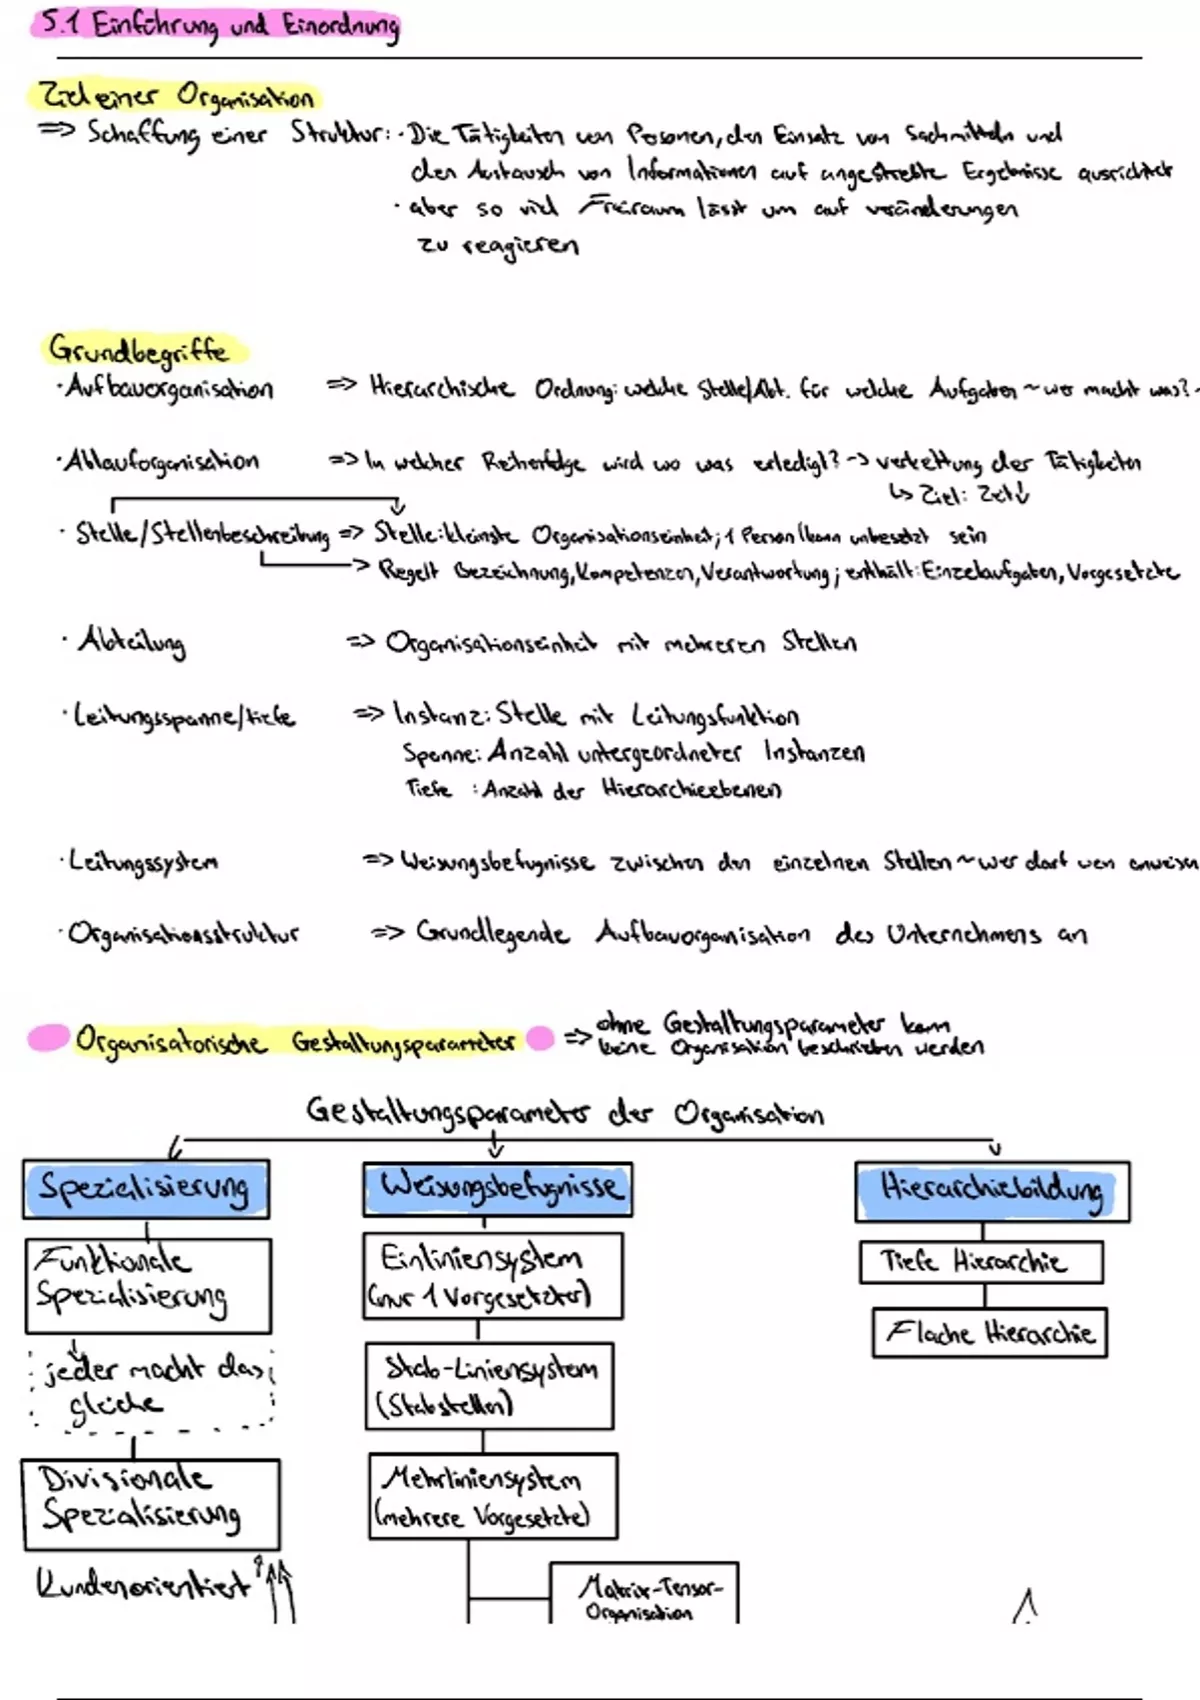 5.1 Einführung und Einordnung
Ziel einer Organisation
=> Schaffung einer Struktur: · Die Tätigkeiten von Personen, den Einsatz von Sachmitteln und
den Austausch von Informationen auf angestrebte Ergebnisse ausrichtet
· aber so viel Freiraum lässt um auf veränderungen
zu reagieren
Grundbegriffe
· Aufbauorganisation => Hierarchische Ordnung: welche Stelle/Abt. für welche Aufgaben ~ wer macht was?
· Ablauforganisation => In welcher Reihenfolge wird wo was erledigt? -> verkettung der Tätigkeiten
↳ Ziel: Zeit↓
· Stelle/Stellenbeschreibung => Stelle: kleinste Organisationseinheit; 1 Person/kann unbesetzt sein
-> Regelt Bezeichnung, Kompetenzen, Verantwortung; enthält: Einzelaufgaben, Vorgesetzte
· Abteilung => Organisationseinheit mit mehreren Stellen
· Leitungsspanne/tiefe => Instanz: Stelle mit Leitungsfunktion
Spanne: Anzahl untergeordneter Instanzen
Tiefe : Anzahl der Hierarchieebenen
· Leitungssystem => Weisungsbefugnisse zwischen den einzelnen Stellen ~ wer darf wen anweisen
· Organisationsstruktur => Grundlegende Aufbauorganisation des Unternehmens an
Organisatorische Gestaltungsparameter => ohne Gestaltungsparameter kann
keine Organisation beschrieben werden
Gestaltungsparameter der Organisation
Spezialisierung Weisungsbefugnisse Hierarchiebildung
Funktionale
Spezialisierung
jeder macht das
gleiche
Divisionale
Spezialisierung
Kundenorientiert
Einliniensystem
(nur 1 Vorgesetzter)
Stab-Liniensystem
(Stabstellen)
Mehrliniensystem
(mehrere Vorgesetzte)
Matrix-Tensor-
Organisation
Tiefe Hierarchie
Flache Hierarchie